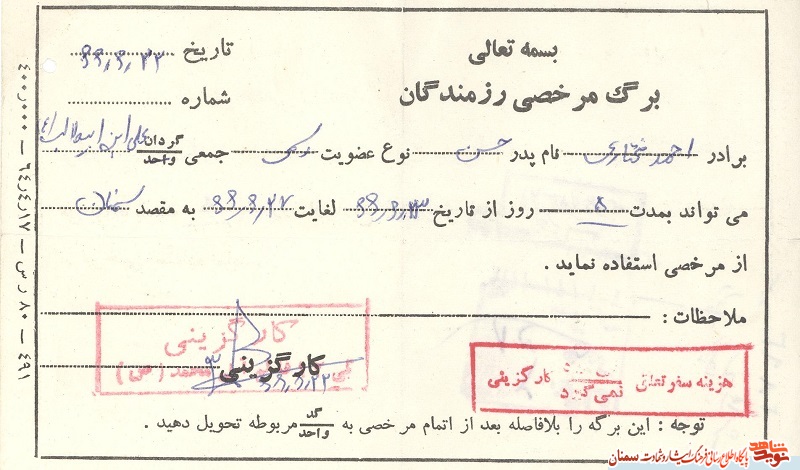 بسمه تعالی
برگ مرخصی رزمندگان
تاریخ ۶۶٫۶٫۲۲
شماره
برادر احمد مختاری نام پدر حسن نوع عضویت رسمی جمعی گردان/واحد علی ابن ابیطالب
می تواند بمدت ۵ روز از تاریخ ۶۶٫۶٫۲۳ لغایت ۶۶٫۶٫۲۷ به مقصد سمنان
از مرخصی استفاده نماید .
ملاحظات :
کارگزینی
کارگزینی
۶۶٫۶٫۲۲
هزینه سفر تعلق نمی گردد کارگزینی
توجه : این برگه را بلافاصله بعد از اتمام مرخصی به گد/واحد مربوطه تحویل دهید .
۴۰۰٫۰۰۰ – ۶۴٫۴٫۱۷ – ۸۰ ر س – ۴۹۱
نوید شاهد
پایگاه اطلاع رسانی فرهنگ ایثار و شهادت سمنان